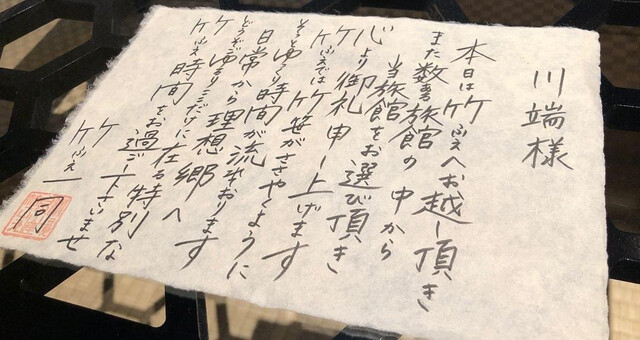 川端様
本日は竹ふえへお越し頂き
また数ある旅館の中から
当旅館をお選び頂き
心より御礼申し上げます
竹ふえでは竹笹がささやくように
そよそよとゆっくり時間が流れております
日常から理想郷へ
どうぞごゆるりと
竹ふえだけに在る特別な
時間をお過ごし下さいませ
竹ふえ一同